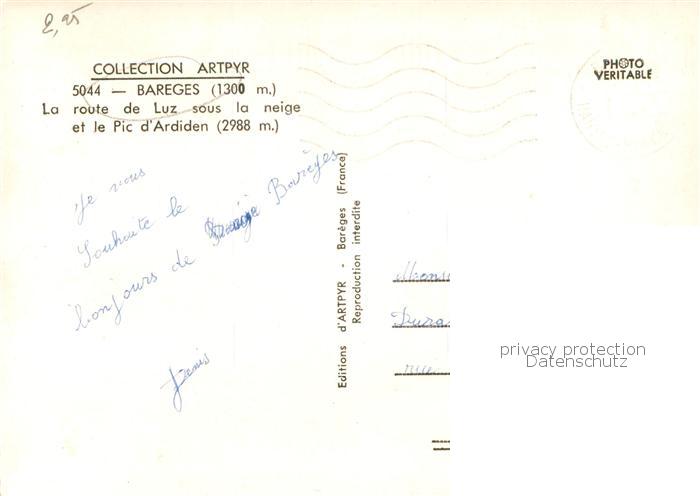 2,95
COLLECTION ARTPYR
5044 — BAREGES (1300 m.)
La route de Luz sous la neige
et le Pic d'Ardiden (2988 m.)
PHOTO
VERITABLE
Je vous
Souhaite le
bonjours de Barèges
Denis
Editions d'ARTPYR - Barèges (France)
Reproduction interdite
Monsi
rue
privacy protection
Datenschutz